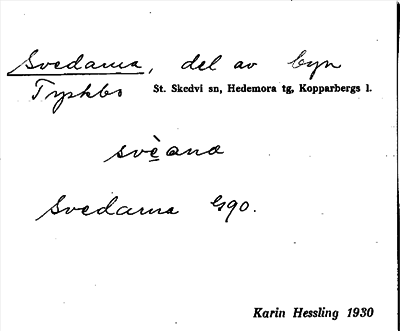 Svedarna, del av byn
Tyskbo St. Skedvi sn, Hedemora tg, Kopparbergs l.
svèana
Svedarna 1790.
Karin Hessling 1930